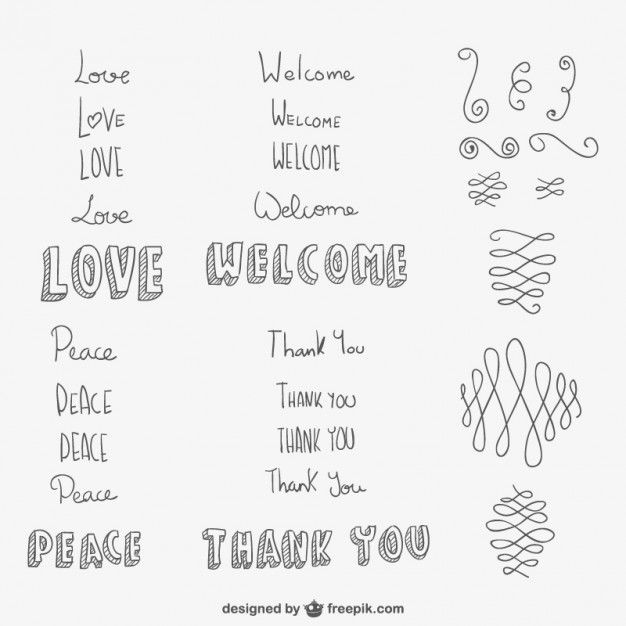 Love
LOVE
LOVE
Love
LOVE
Welcome
WELCOME
WELCOME
Welcome
WELCOME
Peace
PEACE
PEACE
Peace
PEACE
Thank You
THANK YOU
THANK YOU
Thank You
THANK YOU
designed by freepik.com